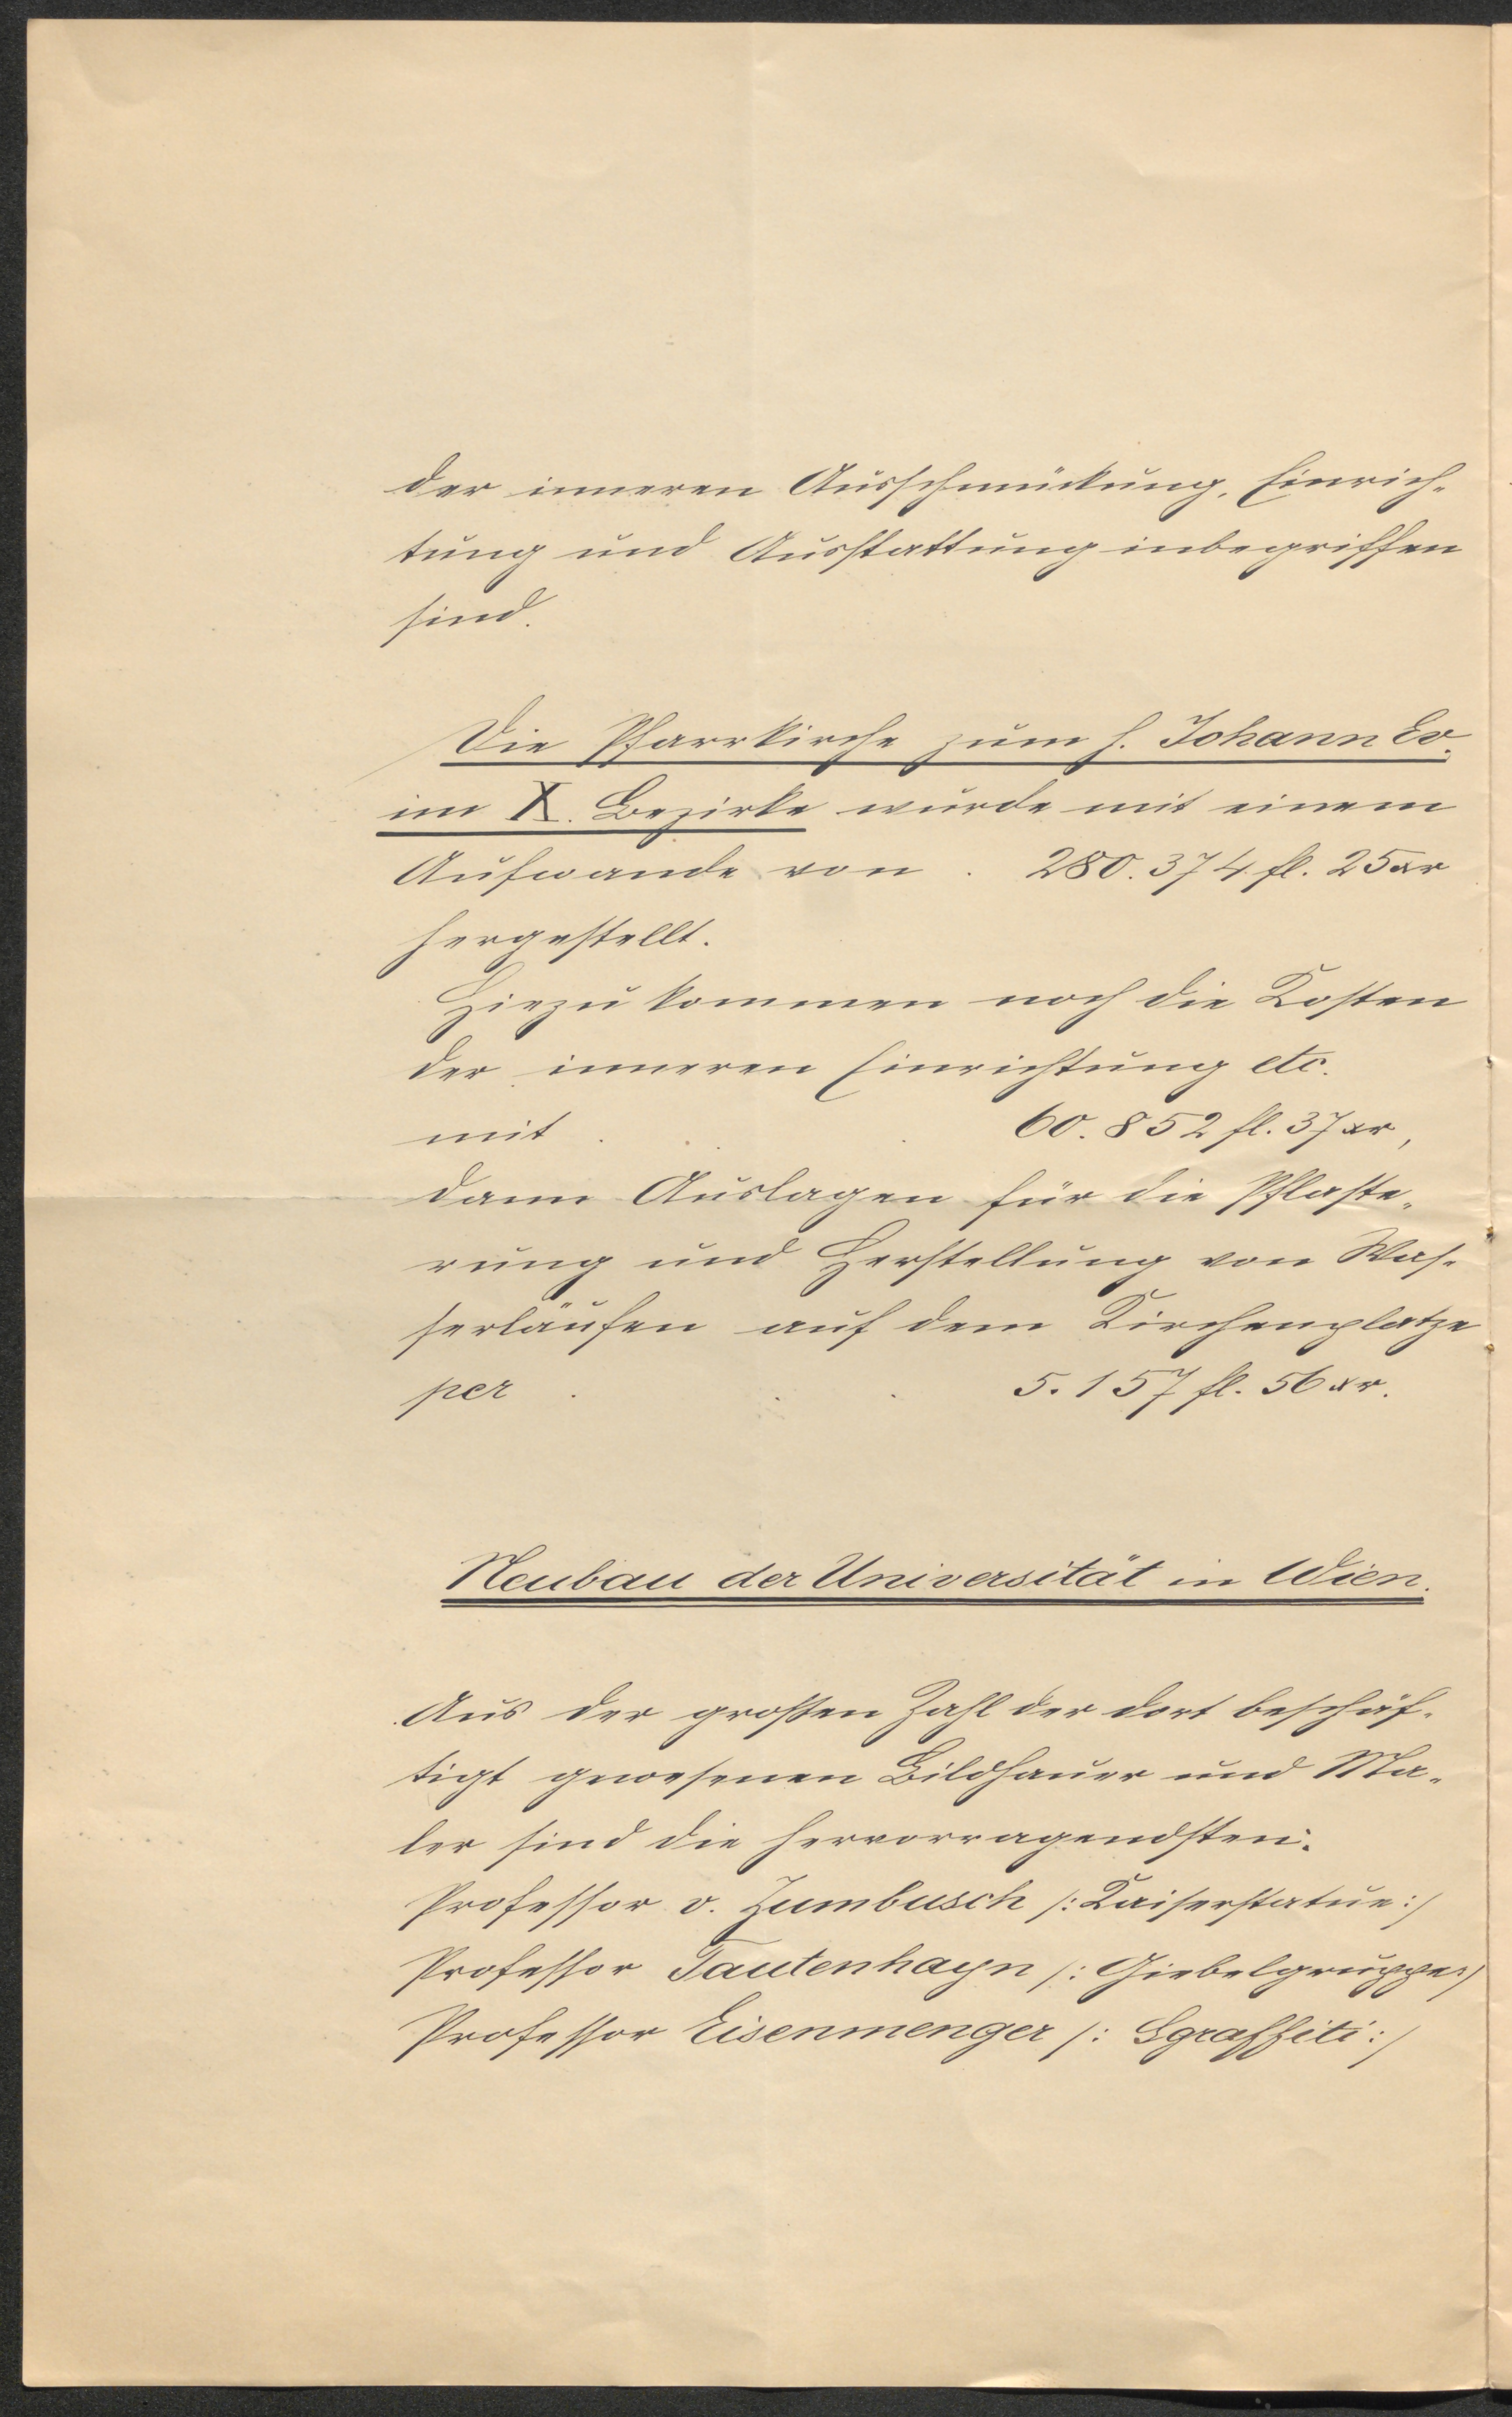 der inneren Ausschmückung, Einrich-
tung und Ausstattung inbegriffen
sind.
Die Pfarrkirche zum h. Johann Ev.
im X. Bezirke wurde mit einem
Aufwande von . 280.374 fl. 25 xr
hergestellt.
Hiezu kommen noch die Kosten
der inneren Einrichtung etc.
mit . . . 60.852 fl. 37 xr,
dann Auslagen für die Pflaste-
rung und Herstellung von Was-
serläufen auf dem Kirchenplatze
per . . . 5.157 fl. 56 xr.
Neubau der Universität in Wien.
Aus der großen Zahl der dort beschäf-
tigt gewesenen Bildhauer und Ma-
ler sind die hervorragendsten:
Professor v. Zumbusch /: Kaiserstatue :/
Professor Tautenhayn /: Giebelgruppe :/
Professor Eisenmenger /: Sgraffiti :/